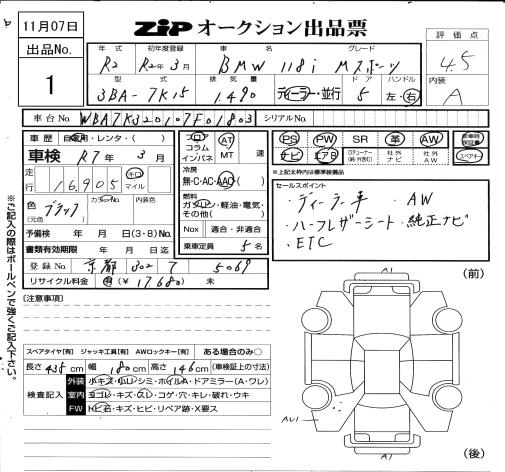 11月07日
ZIP オークション出品票
出品No.
1
評価点
4.5
内装
A
年式 初年度登録 車名 グレード
R2 R2年3月 BMW 118i Mスポーツ
型式 排気量 ドア ハンドル
3BA-7K15 1,490 ディーラー・並行 5 左・右
車台No. WBA7K320107F01803 シリアルNo.
車歴 自家用・レンタ・( )
車検 R7年3月
走行 16,905 キロ マイル
色 ブラック カラーNo. 内装色
(元色)
予備検 年 月 日(3・8)No.
書類有効期限 年 月 日迄
登録No. 京都 302 て 5069
リサイクル料金 有(¥17,680) 未
フロア コラム インパネ
AT MT 速
冷房
無・C・AC・AAC
燃料
ガソリン・軽油・電気・その他( )
Nox 適合・非適合
乗車定員 5名
PS PW SR 革 AW
ナビ エアB 社外ナビ 社外AW
スペアキー
*上記太枠内は標準装備品
セールスポイント
・ディーラー車 ・AW
・ハーフレザーシート・純正ナビ
・ETC
※ご記入の際はボールペンで強くご記入下さい。
(注意事項)
スペアタイヤ[有] ジャッキ工具[有] AWロックキー[有] ある場合のみ○
長さ 435cm 幅 180cm 高さ 146cm (車検証上の寸法)
検査記入
外装 小キズ・小凹・シミ・ホイルA・ドアミラー(A・ワレ)
室内 ヨゴレ・キズ・スレ・コゲ・穴・キレ・破れ・ウキ
FW 飛石・キズ・ヒビ・リペア跡・X要ス
(前)
A1
AU1
A1
(後)